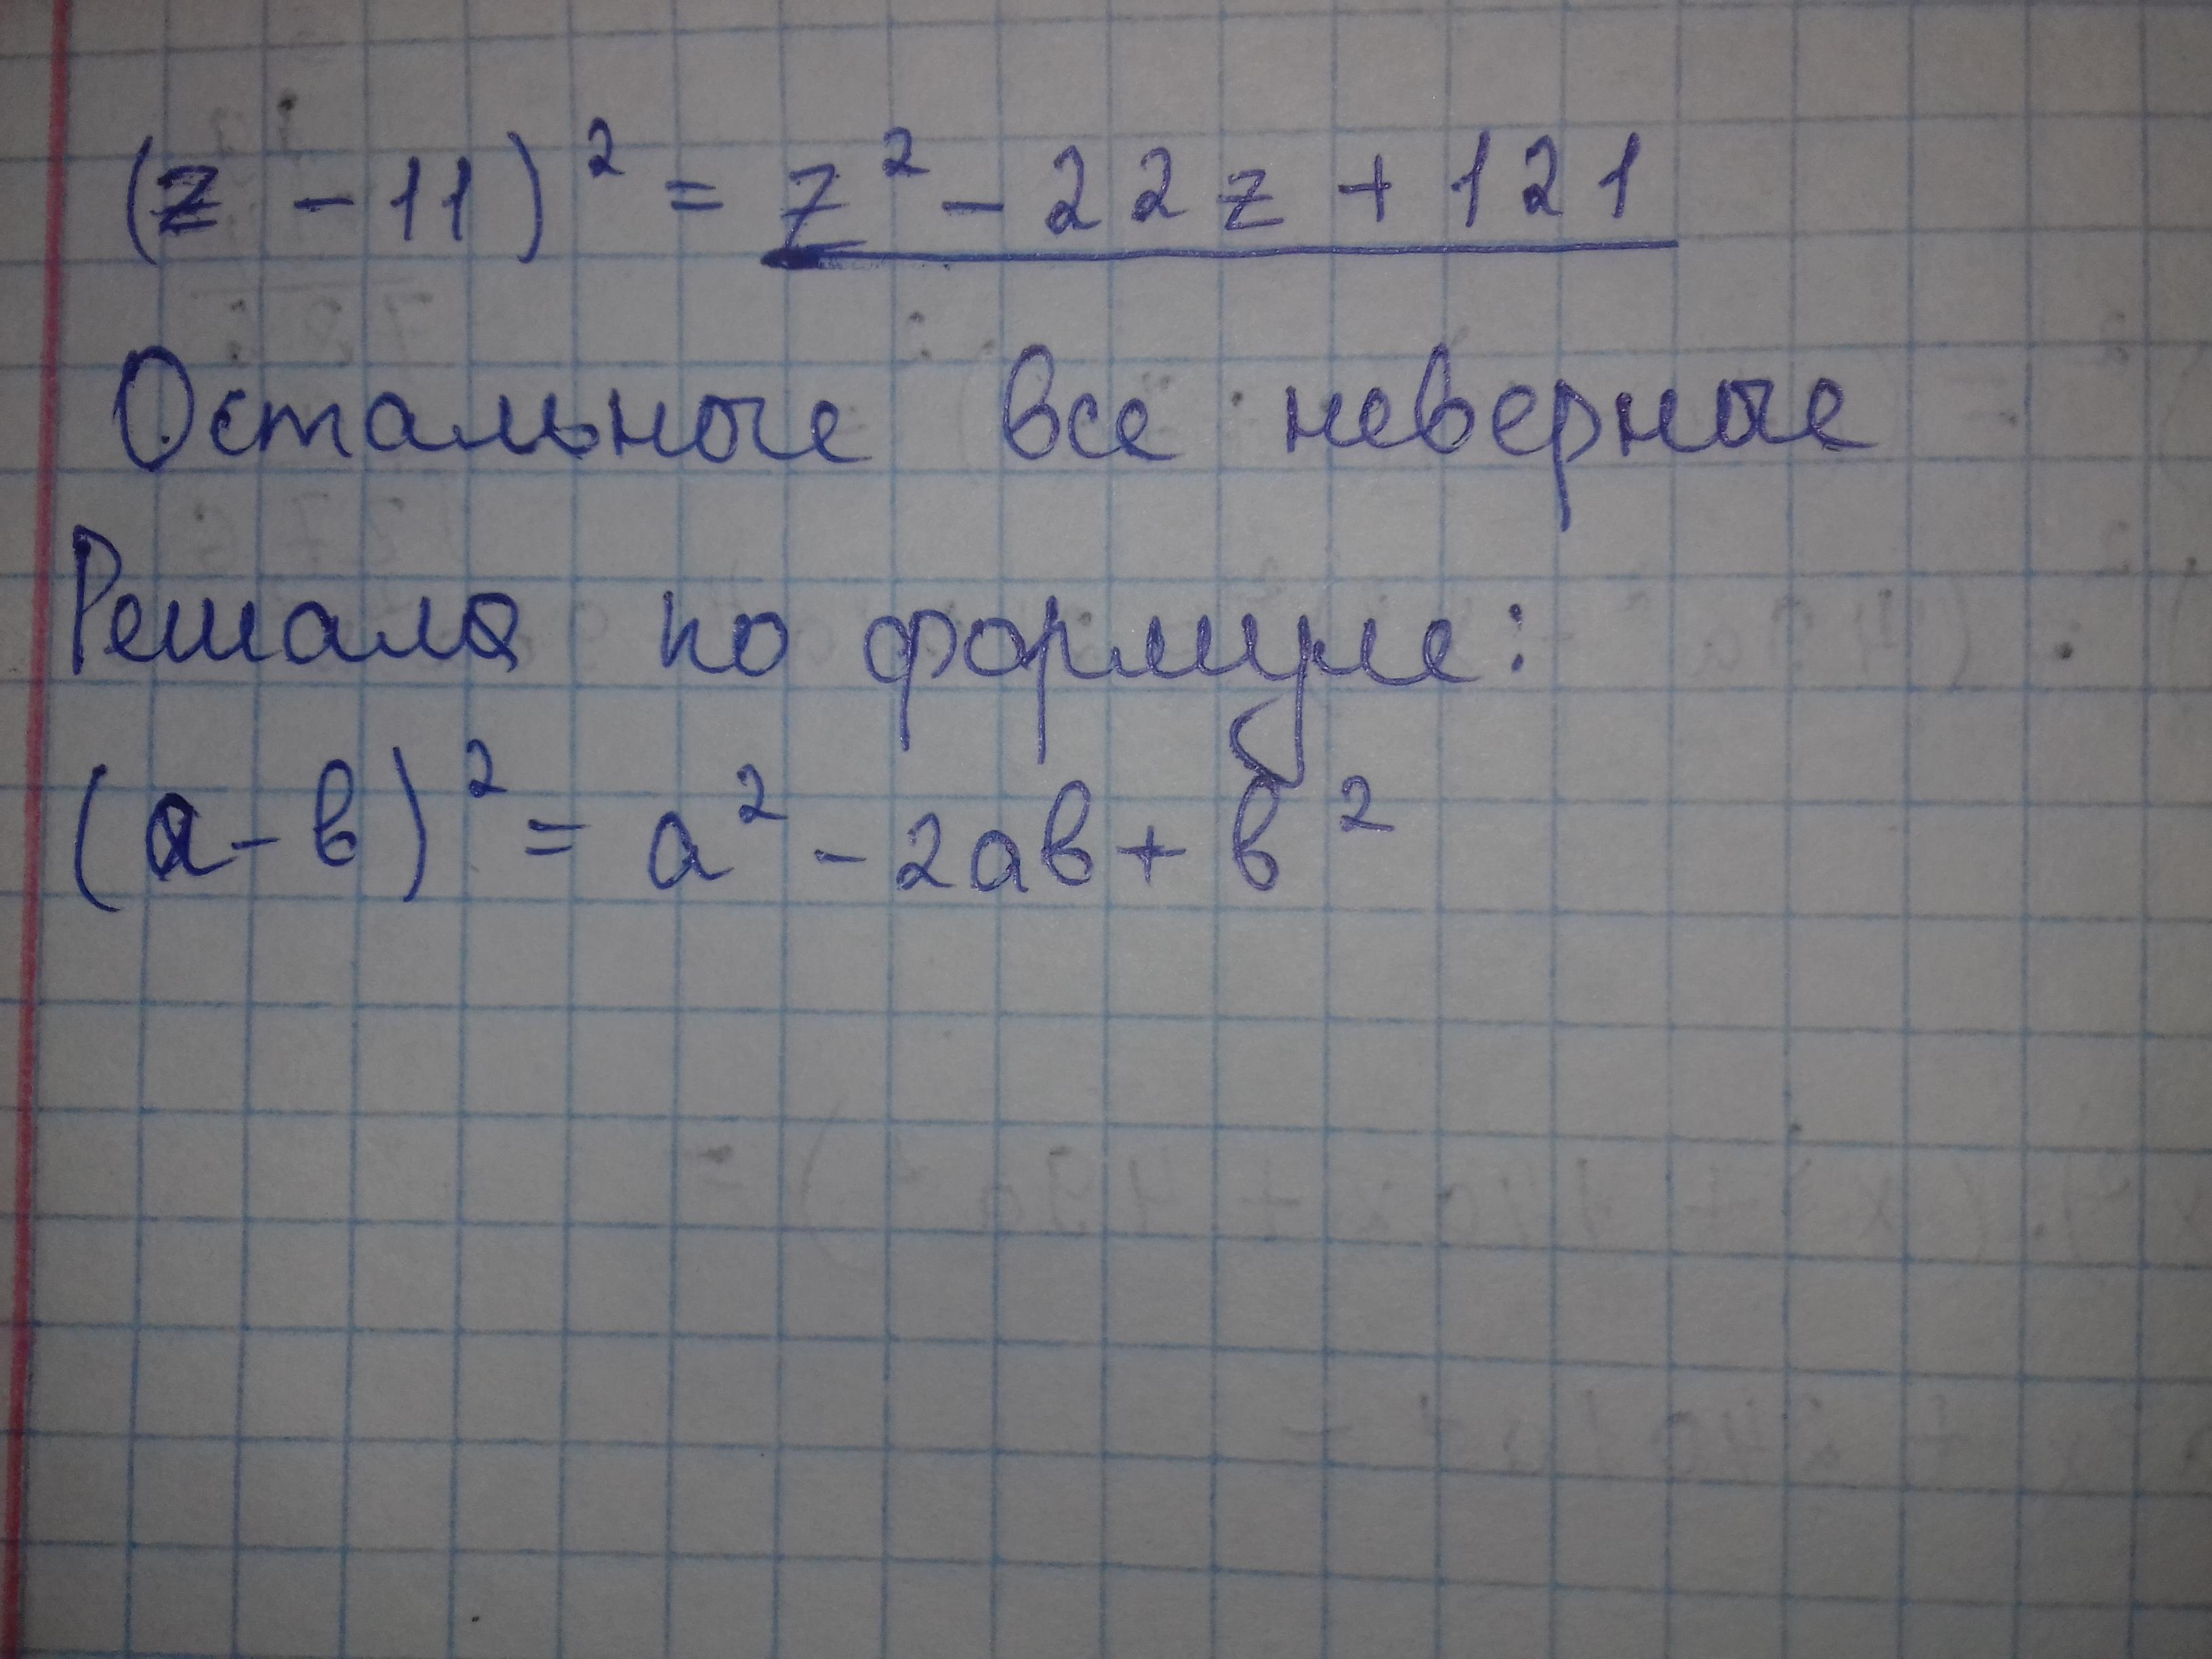 (z - 11)² = z² - 22z + 121
Остальные все неверные
Решала по формуле:
(a - в)² = a² - 2ав + в²